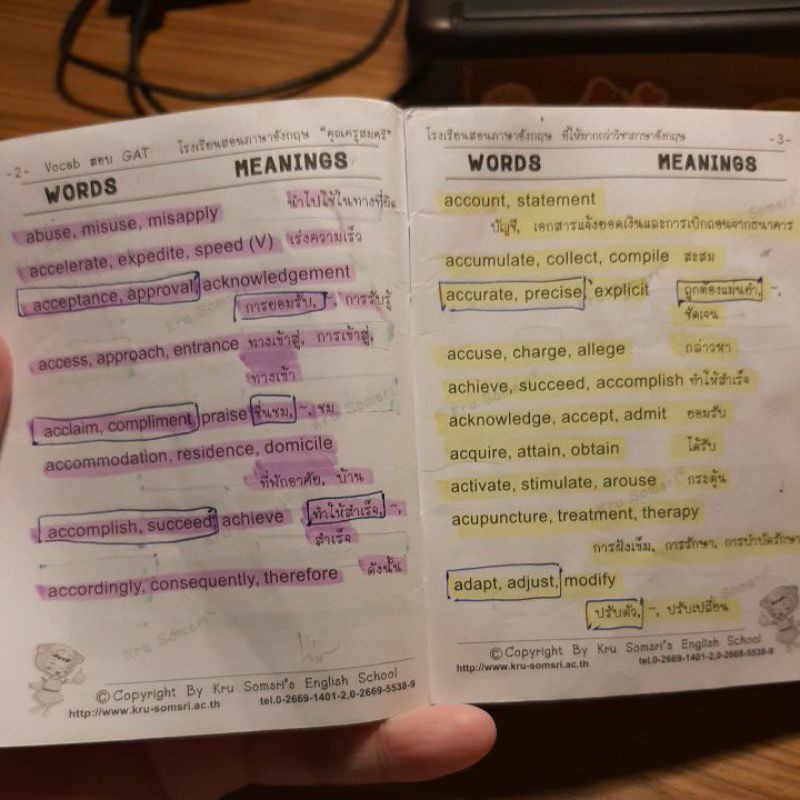 -2- Vocab สอบ GAT โรงเรียนสอนภาษาอังกฤษ "คุณครูสมศรี"
WORDS MEANINGS
abuse, misuse, misapply นำไปใช้ในทางที่ผิด
accelerate, expedite, speed (V) เร่งความเร็ว
acceptance, approval, acknowledgement
การยอมรับ, ~, การรับรู้
access, approach, entrance ทางเข้าสู่, การเข้าสู่,
ทางเข้า
acclaim, compliment, praise ชื่นชม, ~, ชม
accommodation, residence, domicile
ที่พักอาศัย, บ้าน
accomplish, succeed, achieve ทำให้สำเร็จ, ~,
สำเร็จ
accordingly, consequently, therefore ดังนั้น
Kru Somsri
© Copyright By Kru Somsri's English School
http://www.kru-somsri.ac.th tel.0-2669-1401-2,0-2669-5538-9
โรงเรียนสอนภาษาอังกฤษ ที่ให้มากกว่าวิชาภาษาอังกฤษ -3-
WORDS MEANINGS
account, statement
บัญชี, เอกสารแจ้งยอดเงินและการเบิกถอนจากธนาคาร
accumulate, collect, compile สะสม
accurate, precise, explicit ถูกต้องแม่นยำ, ~,
ชัดเจน
accuse, charge, allege กล่าวหา
achieve, succeed, accomplish ทำให้สำเร็จ
acknowledge, accept, admit ยอมรับ
acquire, attain, obtain ได้รับ
activate, stimulate, arouse กระตุ้น
acupuncture, treatment, therapy
การฝังเข็ม, การรักษา, การบำบัดรักษา
adapt, adjust, modify
ปรับตัว, ~, ปรับเปลี่ยน
© Copyright By Kru Somsri's English School
http://www.kru-somsri.ac.th tel.0-2669-1401-2,0-2669-5538-9